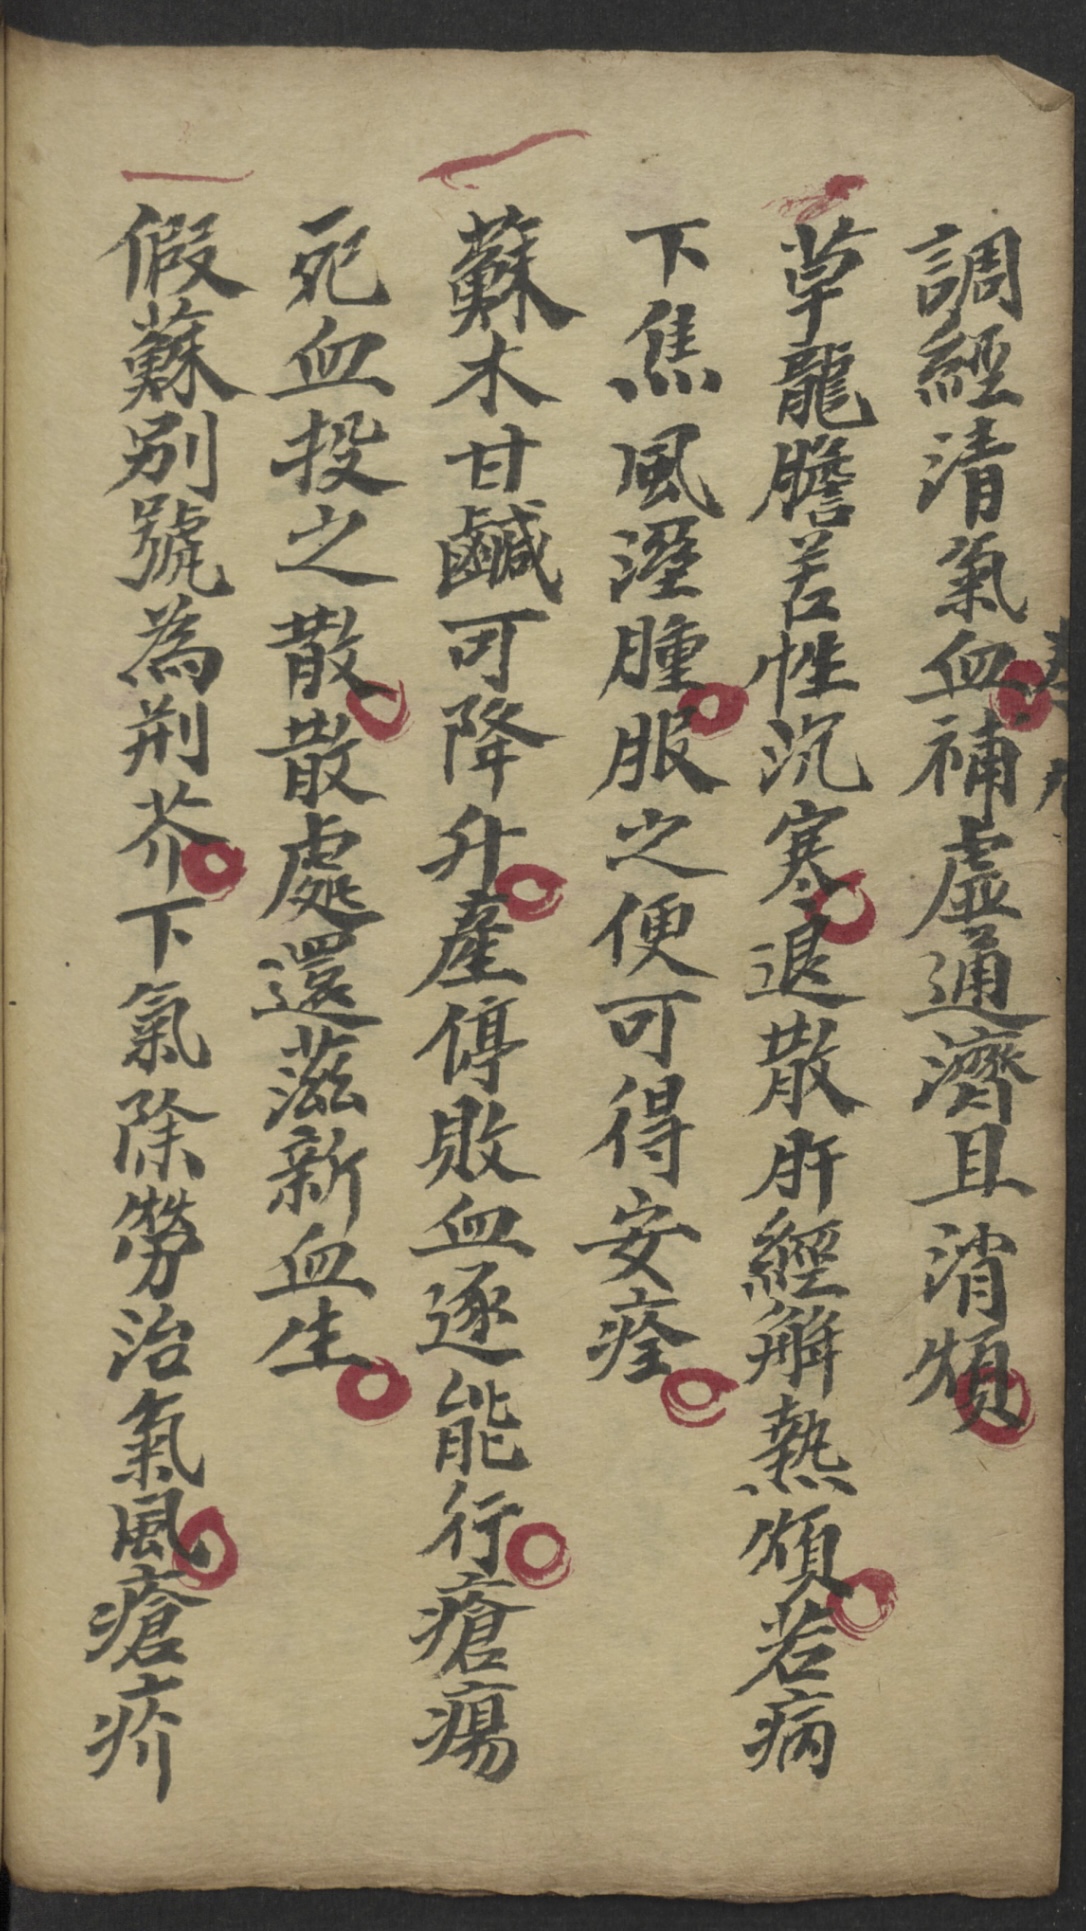 調經清氣血補虛通濟且消煩
草龍膽苦性沉寒退散肝經解熱煩若病
下焦風溼腫服之便可得安痊
蘇木甘鹹可降升產停敗血逐能行瘡瘍
死血投之散散處還滋新血生
假蘇別號為荆芥下氣除勞治氣風瘡疥